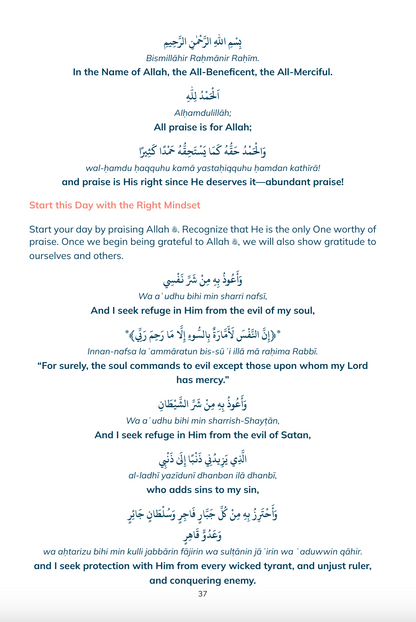 بِسْمِ اللهِ الرَّحْمٰنِ الرَّحِيمِ
Bismillāhir Raḥmānir Raḥīm.
In the Name of Allah, the All-Beneficent, the All-Merciful.
اَلْحَمْدُ لِلّٰهِ
Alḥamdulillāh;
All praise is for Allah;
وَالْحَمْدُ حَقُّهُ كَمَا يَسْتَحِقُّهُ حَمْدًا كَثِيرًا
wal-ḥamdu ḥaqquhu kamā yastaḥiqquhu ḥamdan kathīrā!
and praise is His right since He deserves it—abundant praise!
Start this Day with the Right Mindset
Start your day by praising Allah ﷻ. Recognize that He is the only One worthy of
praise. Once we begin being grateful to Allah ﷻ, we will also show gratitude to
ourselves and others.
وَأَعُوذُ بِهِ مِنْ شَرِّ نَفْسِي
Wa aʿudhu bihi min sharri nafsī,
And I seek refuge in Him from the evil of my soul,
*﴿إِنَّ النَّفْسَ لَأَمَّارَةٌ بِالسُّوءِ إِلَّا مَا رَحِمَ رَبِّي﴾*
Innan-nafsa laʾammāratun bis-sūʾi illā mā raḥima Rabbī.
“For surely, the soul commands to evil except those upon whom my Lord
has mercy.”
وَأَعُوذُ بِهِ مِنْ شَرِّ الشَّيْطَانِ
Wa aʿudhu bihi min sharrish-Shayṭān,
And I seek refuge in Him from the evil of Satan,
الَّذِي يَزِيدُنِي ذَنْبًا إِلَى ذَنْبِي
al-ladhī yazīdunī dhanban ilā dhanbī,
who adds sins to my sin,
وَأَحْتَرِزُ بِهِ مِنْ كُلِّ جَبَّارٍ فَاجِرٍ وَسُلْطَانٍ جَائِرٍ
وَعَدُوٍّ قَاهِرٍ
wa aḥtarizu bihi min kulli jabbārin fājirin wa sulṭānin jāʾirin wa ʿaduwwin qāhir.
and I seek protection with Him from every wicked tyrant, and unjust ruler,
and conquering enemy.
37